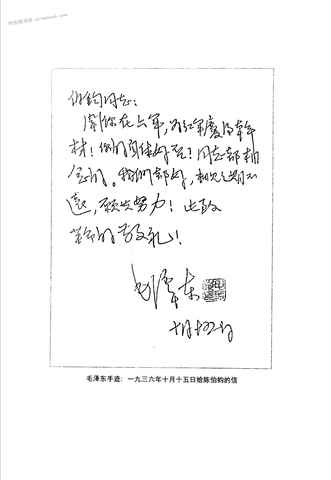 伯钧同志:
闻你在六军,为红军庆得干
材!你的身体好否?同志都相
念的。我们都好,相见之期不
远,愿共努力!此致
革命的敬礼!
毛泽东
十月十五日
毛泽东手迹:一九三六年十月十五日给陈伯钧的信